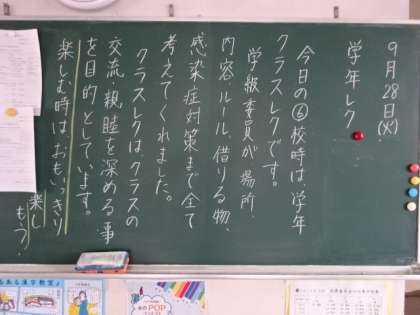 9月28日(火)
学年レク
今日の⑥校時は学年
クラスレクです。
学級委員が場所、
内容、ルール、借りる物、
感染症対策まで全て
考えてくれました。
クラスレクは、クラスの
交流、親睦を深める事
を目的としています。
楽しむ時は、おもいっきり
楽し
もう。